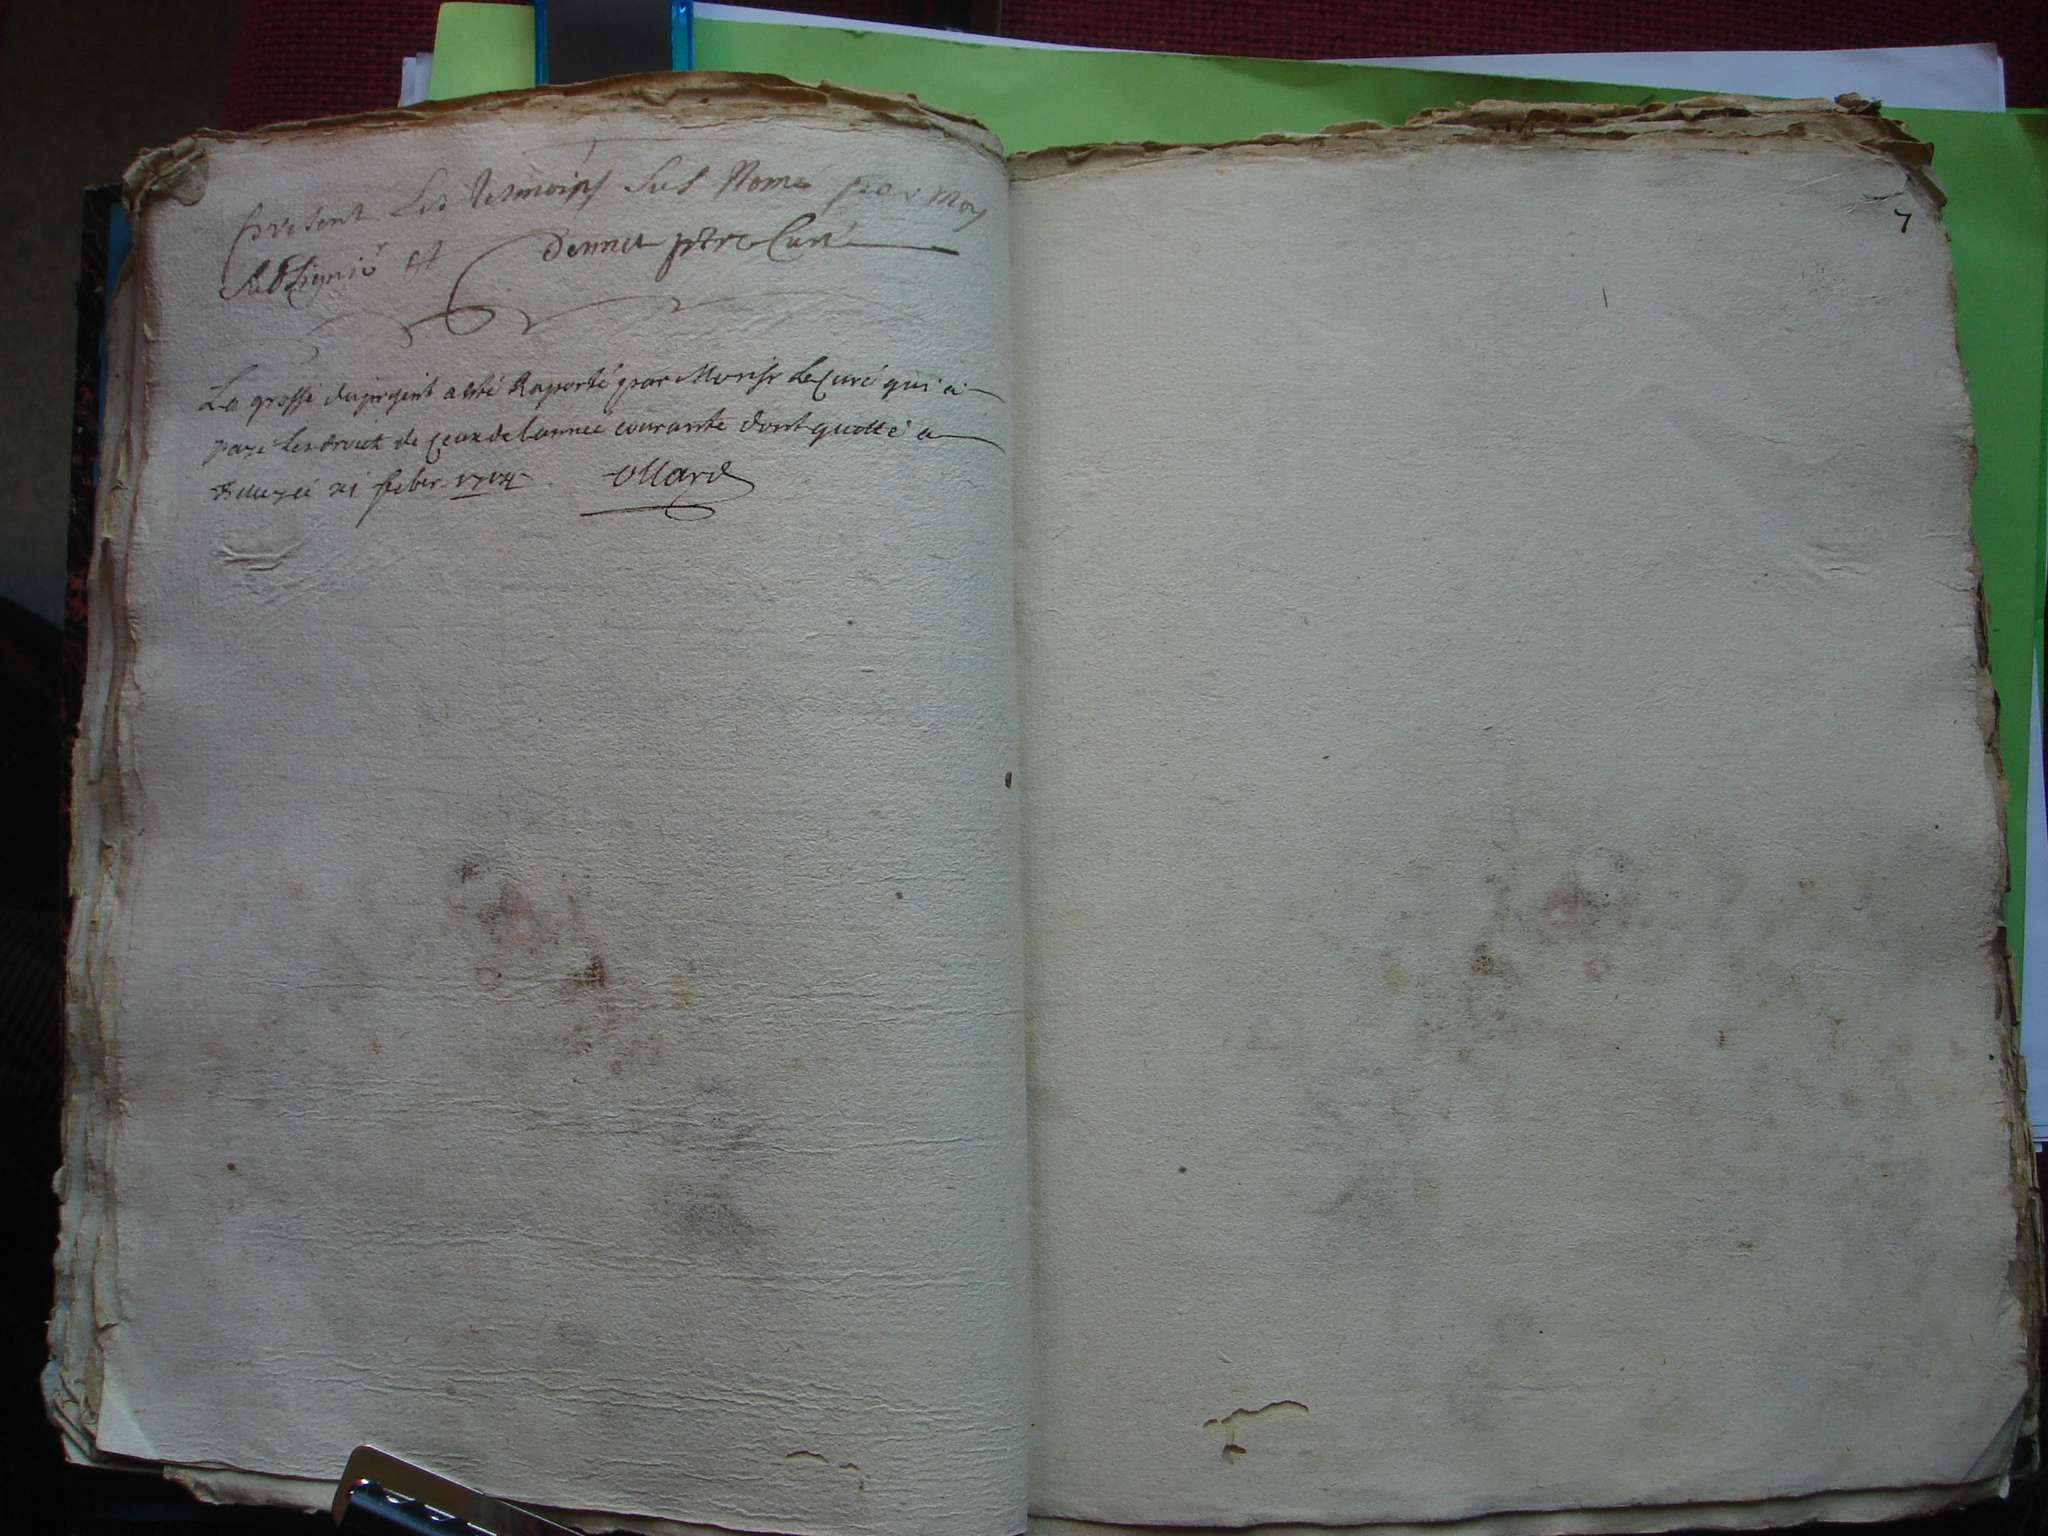 present Les tesmoins sus Nomé par moy
Dennet ptre Curé
La grosse du pnt a esté Raporté par Monsr Le Curé qui a
payé Les droict de ceux de lannee courante dont quotté a
ce 21 feber 1714 Ollard
7